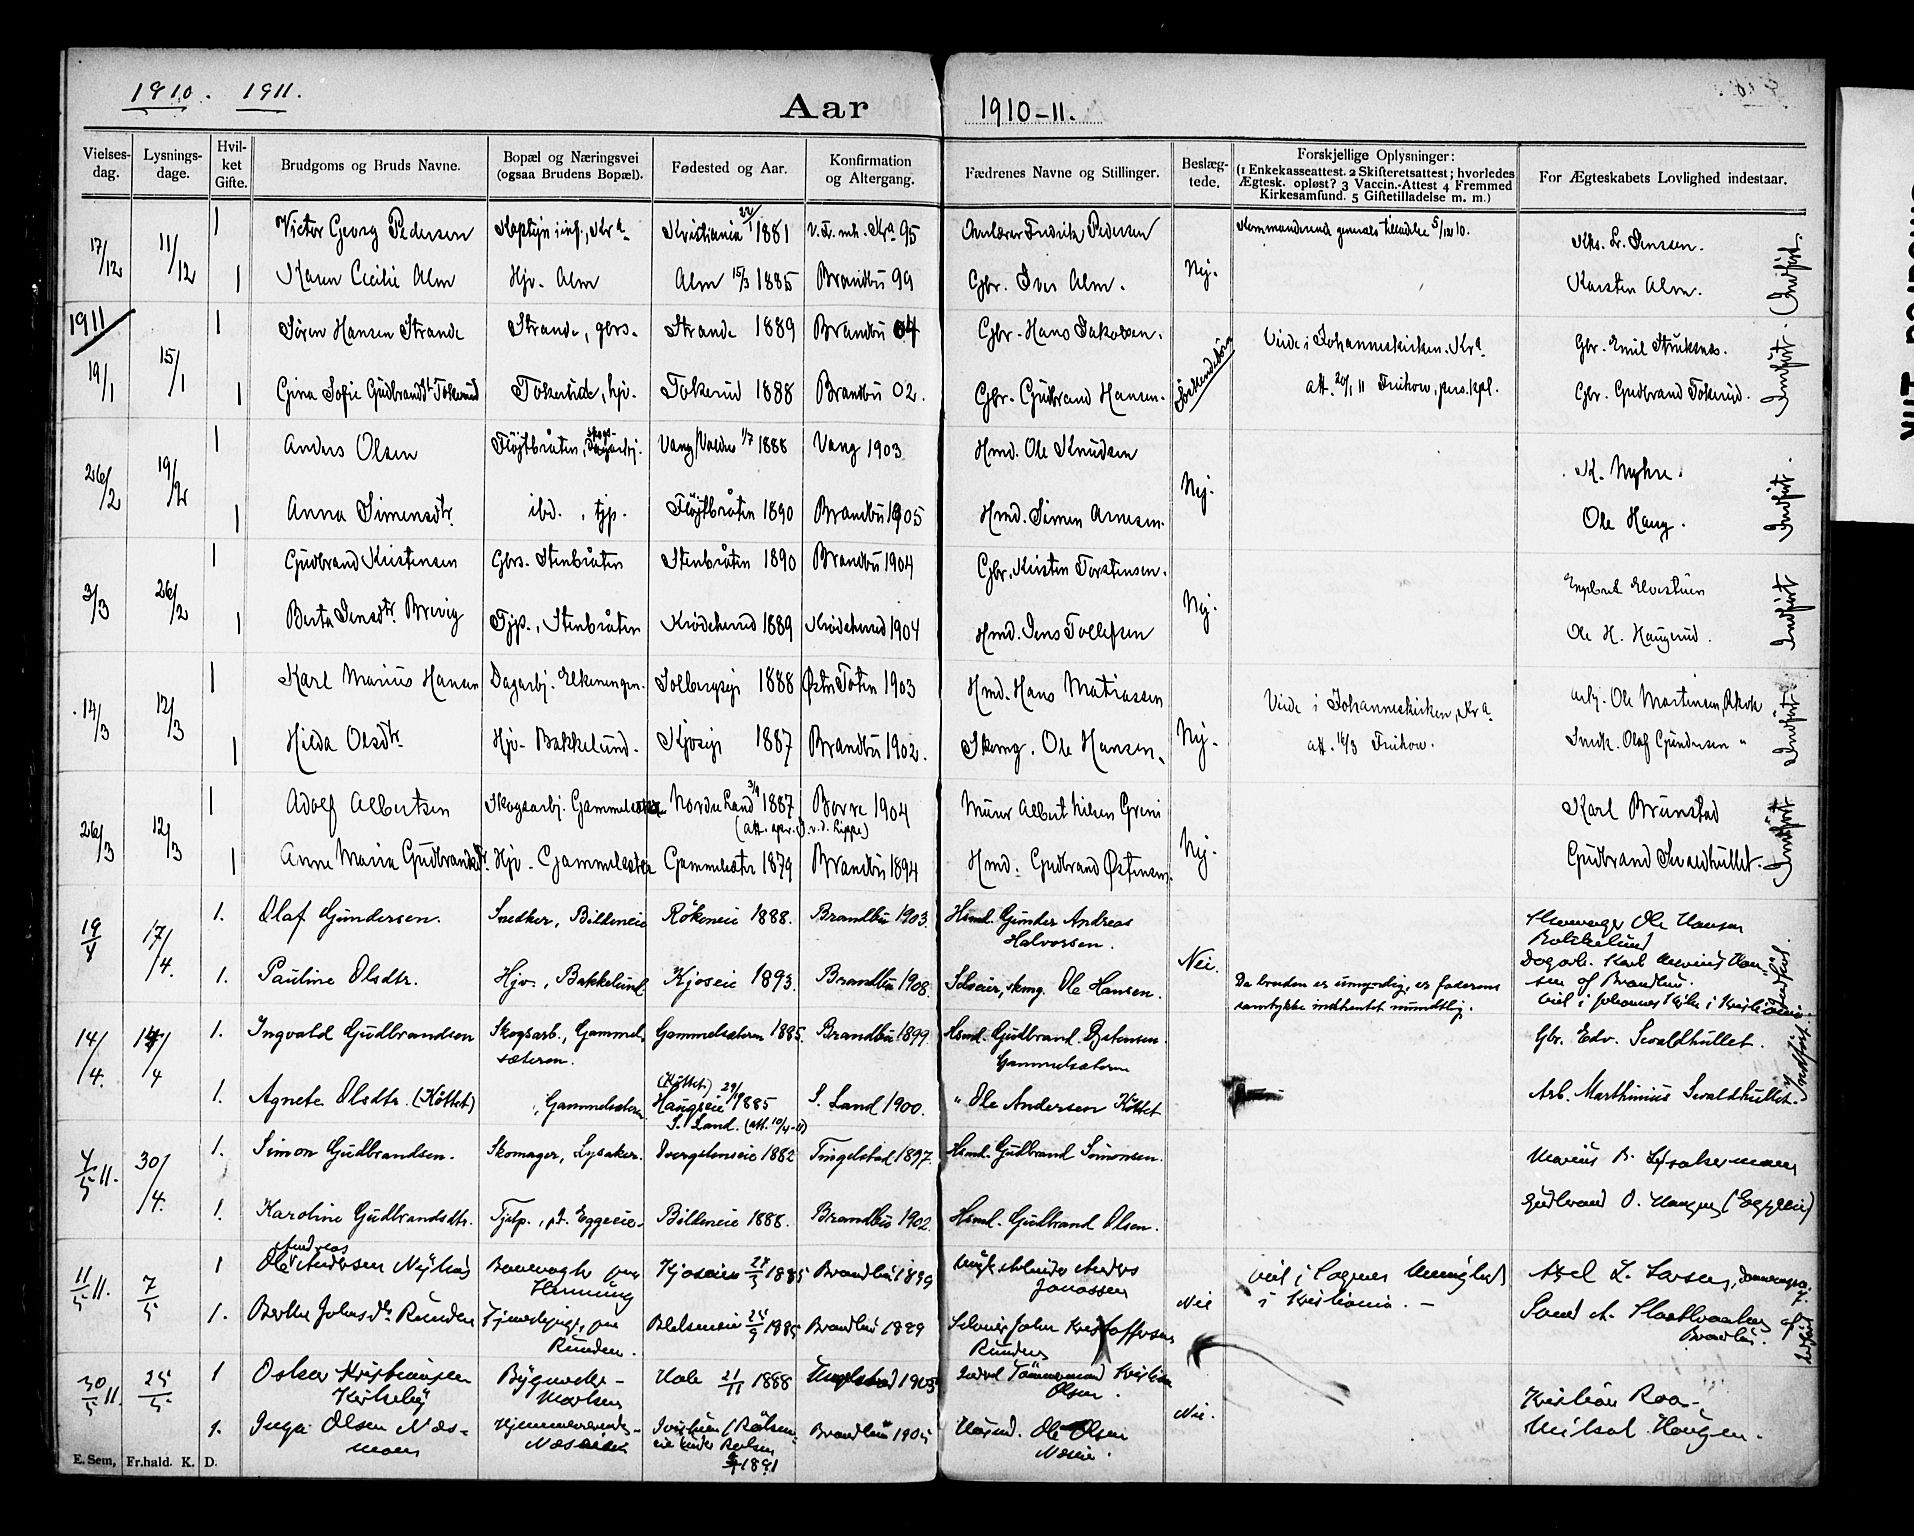 1910. 1911.
Aar 1910-11.
Vielses-dag. Lysnings-dage. Hvil-ket Gifte. Brudgoms og Bruds Navne. Bopæl og Næringsvei (ogsaa Brudens Bopæl). Fødested og Aar. Konfirmation og Altergang. Fædrenes Navne og Stillinger. Beslæg-tede. Forskjellige Oplysninger: (1 Enkekasseattest. 2 Skifteretsattest; hvorledes Ægtesk. opløst? 3 Vaccin.-Attest 4 Fremmed Kirkesamfund. 5 Giftetilladelse m. m.) For Ægteskabets Lovlighed indestaar.
17/12 11/12 1 Victor Georg Pedersen Kaptejn i inf., Kra. Kristiania 22/1 1881 v. Fr. mh. Kra 95 Fredrik Pedersen Kommanderende generals tilladelse 5/12 10. Jenssen.
1 Karen Cecilie Alm Hjv. Alm Alm 15/3 1885 Brandbu 99 Gbr. Iver Alm. Nej. Karsten Alm. Indført.
1911
19/1 15/1 1 Søren Hansen Strande Strande, gbrs. Strande 1889 Brandbu 04 Gbr. Hans Jakobsen. Søskendebørn Viede i Johanneskirken, Kra. Gbr. Emil Struksnæs.
1 Gina Sofie Gudbrandsdtr Tokerud Tokerud, hjv. Tokerud 1888 Brandbu 02. Gbr. Gudbrand Hansen. att. 20/1 11 Freihow, pers. kpl. Gbr. Gudbrand Tokerud. Indført.
26/2 19/2 1 Anders Olsen Fløjtbråten, skogs-arbj. Vang, Valdres 1/7 1888 Vang 1903 Hmd. Ole Knudsen Nej. K. Myhre.
1 Anna Simensdtr. ibd., tjp. Fløjtbråten 1890 Brandbu 1905 Hmd. Simen Arnesen. Ole Haug. Indført.
3/3 26/2 1 Gudbrand Kristensen Gbrs. Stenbråten Stenbråten 1890 Brandbu 1904 Gbr. Kristen Torstensen. Nej. Engebret
1 Berta Jensdtr. Brevig Tjp., Stenbråten Krødsherred 1889 Krødsherred 1904 Hmd. Jens Tollefsen Ole H. Haugerud. Indført
14/3 12/3 1 Karl Marius Hansen Dagarbj. Elkeningen. Solbergseje 1888 Østre Toten 1903 Hmd. Hans Matiassen Nej. Viede i Johanneskirken, Kra. arbj. Ole Martinsen,
1 Hilda Olsdtr. Hjv. Bakkelund. Kjoseje 1887 Brandbu 1902. Skomg. Ole Hansen. att. 16/3 Freihow. Snedk. Olaf Gundersen " Indført
26/3 12/3 1 Adolf Albertsen Skogsarbj. Gammelsæter Nordre Land 3/9 1887 (att. spr. v. d. Lippe) Borre 1904 Murer Albert Nilsen Greni Nej. Karl Brunstad
1 Anne Maria Gudbrandsdtr. Hjv. Gammelsæter Gammelsæter 1879 Brandbu 1894 Hmd. Gudbrand Østensen. Gudbrand Sivaldhullet. Indført
19/4 17/4. 1. Olaf Gundersen. Snedker, Bildeneie Røkeneie 1888. Brandbu 1903. Hsmd. Gunder Andreas Halvorsen. Nei. Skomager Ole Hansen Bakkelund
1. Pauline Olsdtr. Hjv., Bakkelund Kjoseie 1893. Brandbu 1908. Selveier, skmg. Ole Hansen. Da bruden er umyndig, er faderens samtykke indhentet mundtlig. Dagarb. Karl Marius Hansen af Brandbu. Viet i Johannes kirke i Kristiania.
14/4. 17/4 1. Ingvald Gudbrandsen Skogsarb., Gammelsæteren. Gammelsæteren 1885. Brandbu 1899. Hsmd. Gudbrand Østensen. Gammelsæteren Gbr. Edv. Sivaldhullet.
1. Agnete Olsdtr. (Køttet) Gammelsæteren (Køttet) Haugseie 29/9 1885 S. Land. (att. 10/4-11) S. Land 1900. " Ole Andersen Køttet Arb. Marthinius Sivaldhullet. Indført.
4/5 11. 30/4. 1. Simon Gudbrandsen. Skomager, Lysaker. Dvergsteneie 1882 Tingelstad 1897. Hsmd. Gudbrand Simonsen. Marius B. Lysakermoen
1. Karoline Gudbrandsdtr. Tjp., pt. Eggeeie. Bildeneie 1888. Brandbu 1902. Hsmd. Gudbrand Olsen. Gudbrand O. Haugen (Eggeeie)
11/5 11. 7/5 1 Ole Andreas Andersen Nyhus Banevogter paa Hønning Kjoseie 27/3 1885 Brandbu 1899 Anders Jonassen Nei viet i Sognes Menighed i Kristiania. – Axel L. Larsen,
1. Berthe Johnsdtr Runden Hjemmeværende, paa Runden. 25/9 1885 Brandbu 1899 Selveier John Kristoffersen Runden af Brandbu. Indført
30/5 11. 25/5 1 Oskar Kristiansen Kirkeby Bygmester Hole 21/11 1888 Tingelstad 1903 Tømmermand Kristian Olsen. Nei. Kristian Roa.
1. Inga Olsen Næsmoen Hjemmeværende 1891 Brandbu 1905 Husmd. Ole Olsen Næseie. Haugen.
E. Sem, Fr.hald. K. D.